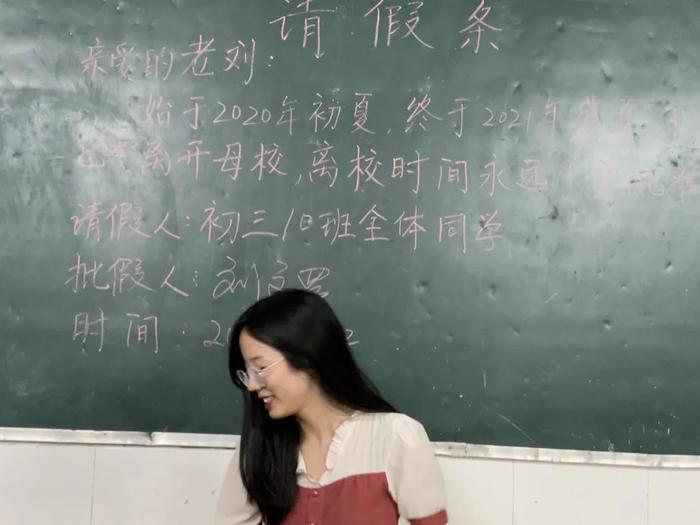 请假条
亲爱的老刘:
始于2020年初夏,终于2021年
离开母校,离校时间永远
请假人:初三10班全体同学
批假人:刘
时间:2